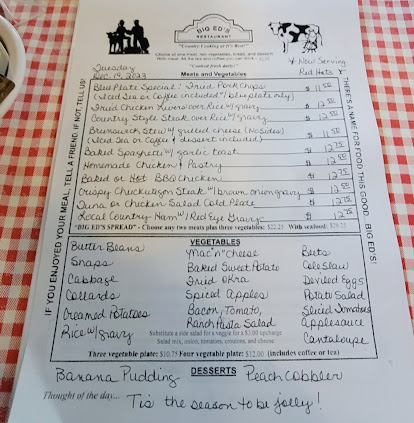 BIG ED'S
RESTAURANT
"Country Cooking at It's Best!"
Choice of one meat, two vegetables, bread, and dessert
"Cooked fresh daily!"
Tuesday
Dec. 19, 2023
* Now Serving
Red Hots *
Meats and Vegetables
Blue Plate Special: Fried Pork Chops $ 11.50
(Iced Tea or Coffee included w/ blue plate only)
Fried Chicken Livers over Rice w/ gravy $ 12.75
Country Style Steak over Rice w/ gravy $ 12.75
Brunswick Stew w/ grilled cheese (No sides) $ 11.50
(Iced Tea or Coffee & dessert included)
Baked Spaghetti w/ garlic toast $ 12.75
Homemade Chicken & Pastry $ 12.75
Baked or Hot BBQ Chicken $ 12.75
Crispy Chuckwagon Steak w/ brown onion gravy $ 12.75
Tuna or Chicken Salad Cold Plate $ 12.75
Local Country Ham w/ Red Eye Gravy $ 12.75
"BIG ED'S SPREAD" - Choose any two meats plus three vegetables: $22.25 With seafood:
IF YOU ENJOYED YOUR MEAL, TELL A FRIEND. IF NOT, TELL US!
THERE'S A NAME FOR FOOD THIS GOOD. BIG ED'S!
VEGETABLES
Butter Beans Mac "n" Cheese Beets
Snaps Baked Sweet Potato Coleslaw
Cabbage Fried Okra Deviled Eggs
Collards Spiced Apples Potato Salad
Creamed Potatoes Bacon, Tomato, Sliced Tomatoes
Rice w/ gravy Ranch Pasta Salad applesauce
Cantaloupe
Substitute a side salad for a veggie for a $3.00 upcharge
Salad mix, onion, tomatoes, croutons, and cheese
Three vegetable plate: $10.75 Four vegetable plate: $12.00 (includes coffee or tea)
DESSERTS
Banana Pudding Peach Cobbler
Thought of the day... 'Tis the season to be jolly!